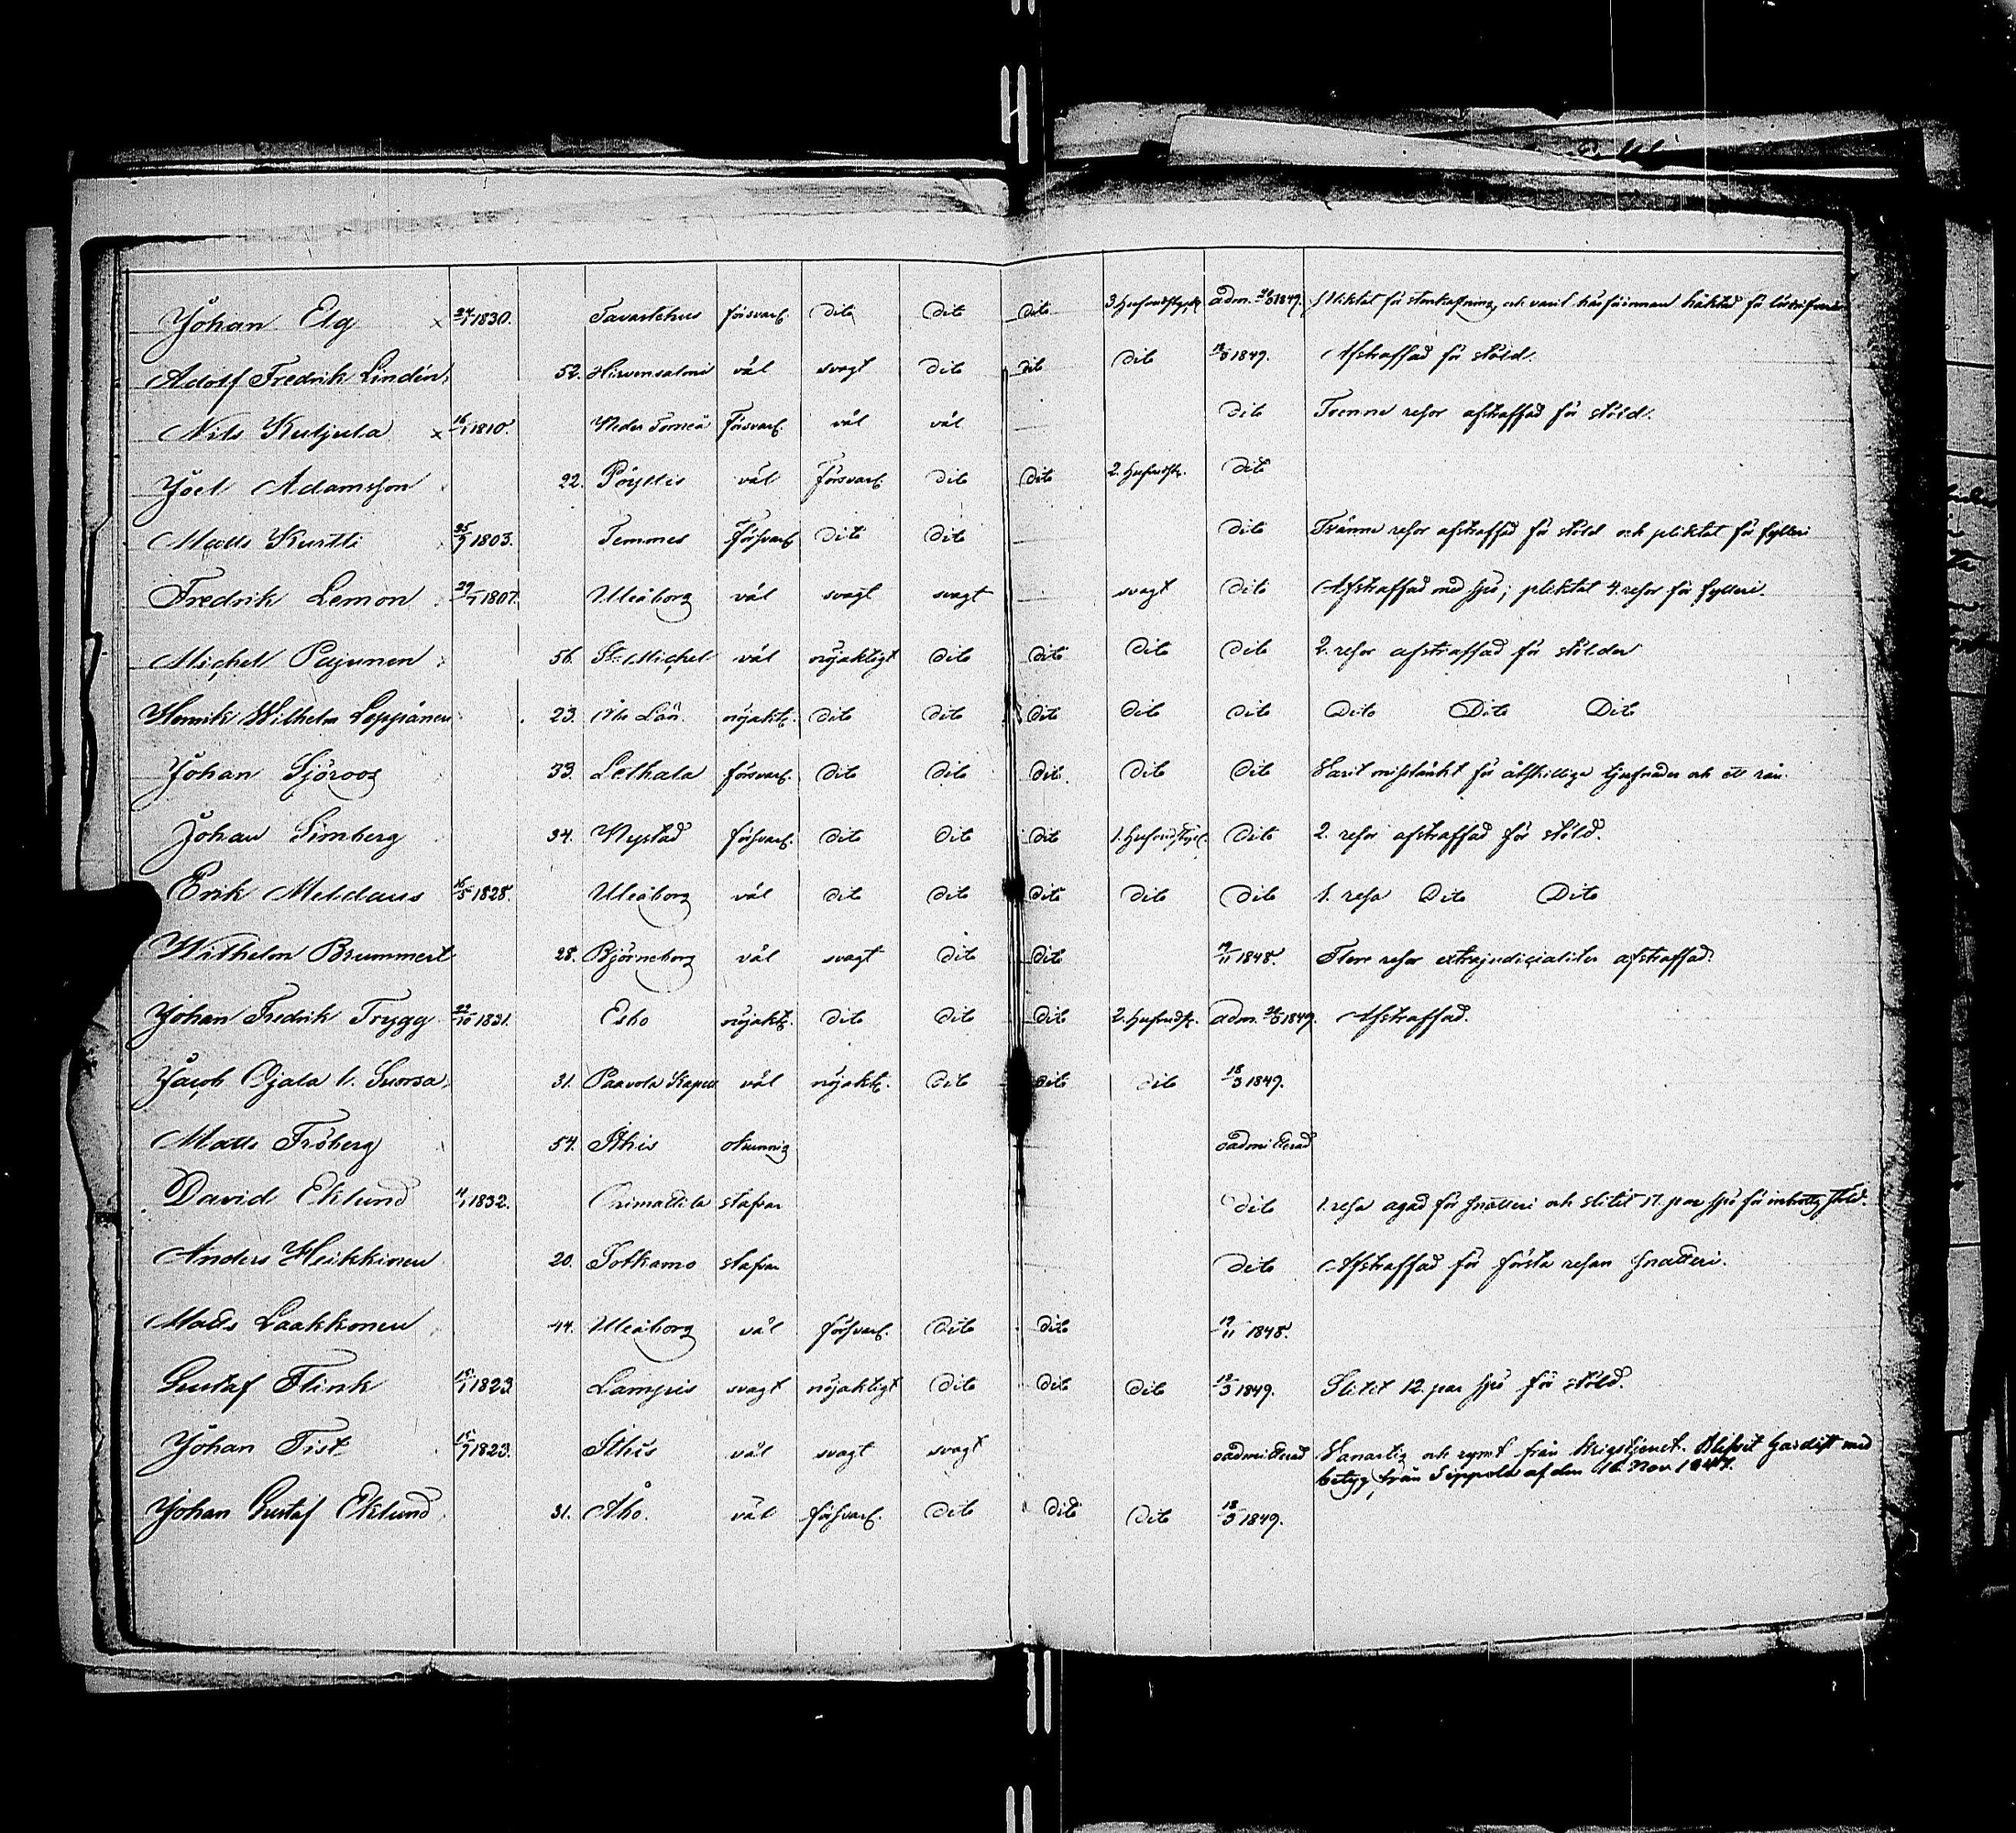 Johan Elg x 24/1 1830. Tavastehus försvarl. dito dito dito 3. hufvudstyck adm. 1849. Pliktat för och varit häktad för
Adolf Fredrik Lindén, 52. Hirvensalmi väl svagt dito dito dito 18/3 1849. Afstraffad för stöld.
Nils Kuljula x 16/1 1810. Neder Torneå Försvarl. väl väl dito Trenne resor afstraffad för stöld.
Joel Adamsson 22. Pöyttis väl Försvarl. dito dito 2. hufvudst. dito
Matts Kurtti 25/9 1803. Temmes Försvarl. dito dito dito Tvänne resor afstraffad för stöld och pliktat för fylleri
Fredrik Lemon 29/7 1807. Uleåborg väl svagt svagt svagt dito Afstraffad med spö; pliktat 4. resor för fylleri.
Michel Pajunen 56. St. Michel väl nöjaktigt dito dito dito dito 2. resor afstraffad för stölder
Henrik Wilhelm Leppänen 23. Åbo Län. nöjaktl. dito dito dito dito dito Dito Dito Dito
Johan Sjöroos 33. Lethala försvarl. dito dito dito dito dito Varit misstänkt för åtskillige tjufnader och ett rån.
Johan Simberg 34. Nystad försvarl. dito dito dito 1. hufvudstyck. dito 2. resor afstraffad för stöld.
Erik Meldaus 16/5 1828. Uleåborg väl dito dito dito dito dito 1. resa Dito Dito
Wilhelm Brummert 28. Björneborg väl svagt dito dito 19/11 1848. Flere resor extrajudicialiter afstraffad.
Johan Fredrik Trygg 22/10 1831. Esbo nöjaktl. dito dito dito 2. hufvudst. adm. 1849. Afstraffad.
Jacob Ojala l. Suorsa, 31. Paavola Kapell väl nöjaktl. dito dito dito 18/3 1849.
Matts Fröberg 54. Ithis okunnig oadmitterad
David Eklund 4/1 1832. Orimattila stafvar dito 1. resa agad för snatteri och slitit 17. par spö för inbrotts stöld.
Anders Heikkinen 20. Sotkamo stafvar dito Afstraffad för första resan snatteri.
Matts Laakkonen 44. Uleåborg väl försvarl. dito dito 19/11 1848.
Gustaf Flink 15/1 1823 Lampis svagt nöjaktigt dito dito dito 18/3 1849. Slitit 12. par spö för stöld.
Johan Tist 15/7 1823. Ithis väl svagt svagt oadmitterad Vanartig och rymt från krigstjenst. Blifvit Gardist med
betyg från Sippola af den 16 Nov 1847.
Johan Gustaf Eklund 31. Åbo. väl försvarl. dito dito dito 18/3 1849.